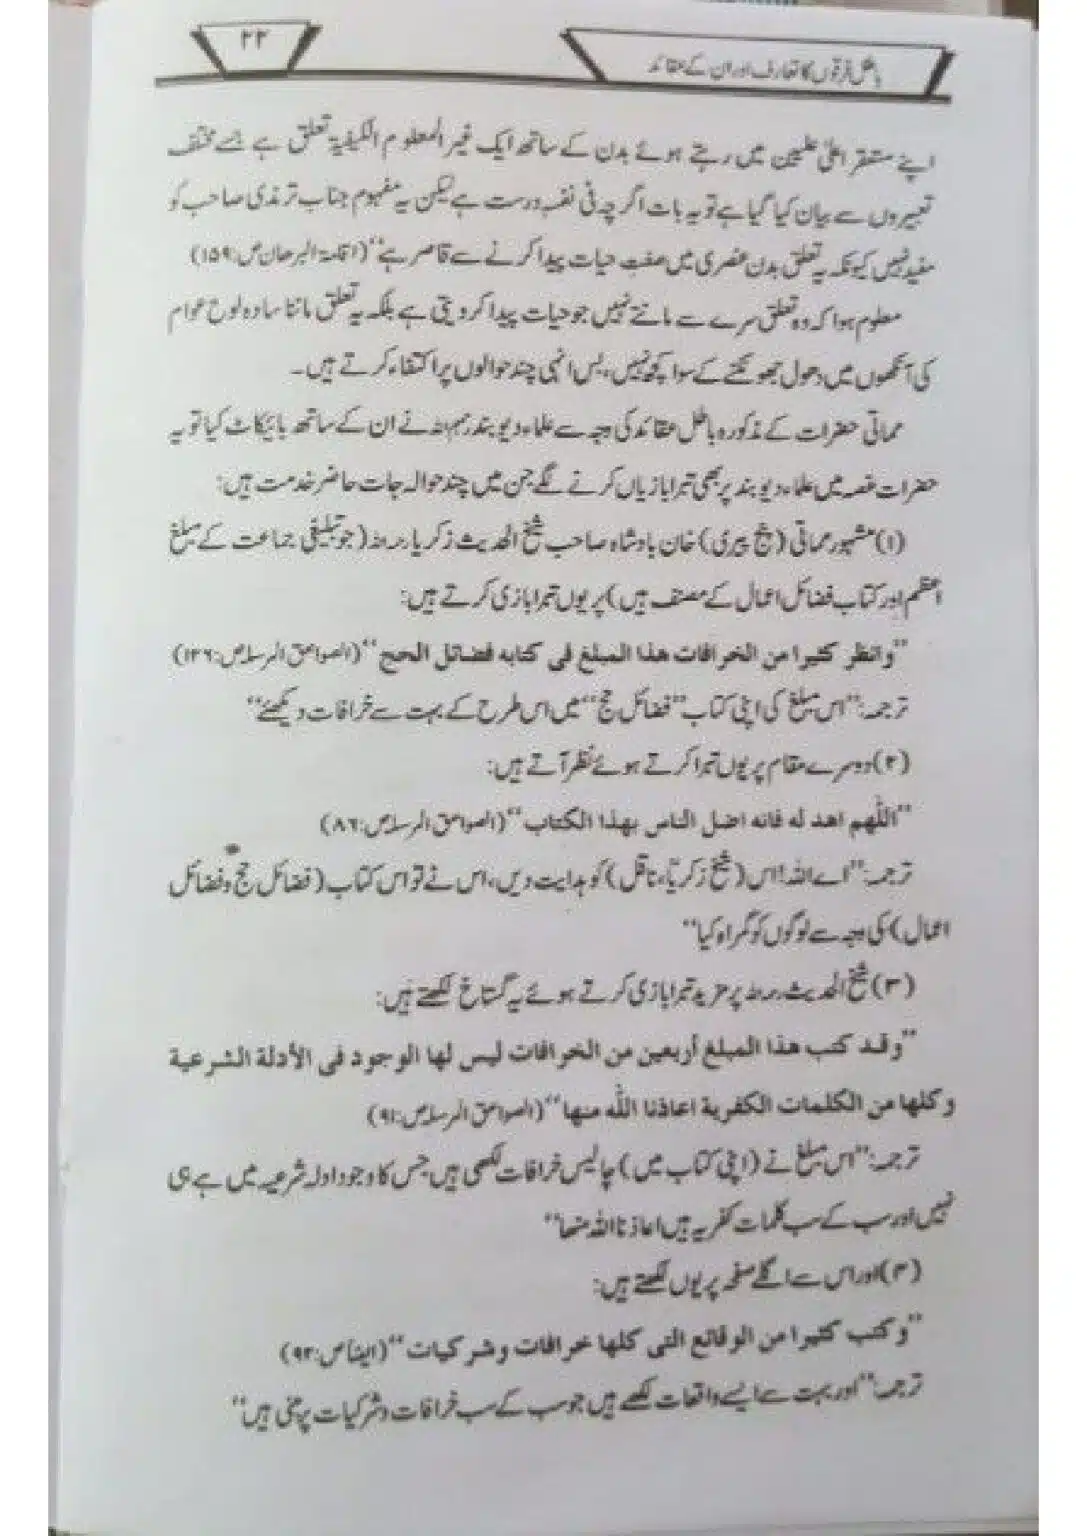 باطل فرقوں کا تعارف اور ان کے عقائد
۲۲
اپنے مستقر اعلیٰ علیین میں رہتے ہوئے بدن کے ساتھ ایک غیر المعلوم الکیفیۃ تعلق ہے جسے مختلف
تعبیروں سے بیان کیا گیا ہے تو یہ بات اگرچہ فی نفسہ درست ہے لیکن یہ مفہوم جناب ترمذی صاحب کو
مفید نہیں کیونکہ یہ تعلق بدن عنصری میں صفتِ حیات پیدا کرنے سے قاصر ہے‘‘ (اقامۃ البرھان ص:۱۵۹)
معلوم ہوا کہ وہ تعلق سرے سے مانتے نہیں جو حیات پیدا کر دیتی ہے بلکہ یہ تعلق ماننا سادہ لوح عوام
کی آنکھوں میں دھول جھونکنے کے سوا کچھ نہیں، بس انہی چند حوالوں پر اکتفاء کرتے ہیں۔
مماتی حضرات کے مذکورہ باطل عقائد کی وجہ سے علماء دیوبند رحمہم اللہ نے ان کے ساتھ بائیکاٹ کیا تو یہ
حضرات غصہ میں علماء دیوبند پر بھی تبرا بازیاں کرنے لگے جن میں چند حوالہ جات حاضر خدمت ہیں:
(۱) مشہور مماتی (پنج پیری) خان بادشاہ صاحب شیخ الحدیث زکریا رحمہ اللہ (جو تبلیغی جماعت کے مبلغ
اعظم اور کتاب فضائل اعمال کے مصنف ہیں) پر یوں تبرا بازی کرتے ہیں:
’’وانظر کثیرا من الخرافات ھذا المبلغ فی کتابہ فضائل الحج‘‘ (الصواعق المرسلہ ص:۱۳۶)
ترجمہ: ’’اس مبلغ کی اپنی کتاب ’’فضائل حج‘‘ میں اس طرح کے بہت سے خرافات دیکھئے‘‘
(۲) دوسرے مقام پر یوں تبرا کرتے ہوئے نظر آتے ہیں:
’’اللّٰھم اھد لہ فانہ اضل الناس بھذا الکتاب‘‘ (الصواعق المرسلہ ص:۸۶)
ترجمہ: ’’اے اللہ! اس (شیخ زکریاؒ، ناقل) کو ہدایت دیں، اس نے تو اس کتاب (فضائل حج و فضائل
اعمال) کی وجہ سے لوگوں کو گمراہ کیا‘‘
(۳) شیخ الحدیث رحمہ اللہ پر مزید تبرا بازی کرتے ہوئے یہ گستاخ لکھتے ہیں:
’’وقد کتب ھذا المبلغ أربعین من الخرافات لیس لھا الوجود فی الأدلة الشرعیة
وکلھا من الکلمات الکفریة اعاذنا اللّٰہ منھا‘‘ (الصواعق المرسلہ ص:۹۱)
ترجمہ: ’’اس مبلغ نے (اپنی کتاب میں) چالیس خرافات لکھی ہیں جس کا وجود ادلہ شرعیہ میں ہے ہی
نہیں اور سب کے سب کلمات کفریہ ہیں اعاذنا اللہ منھا‘‘
(۴) اور اس سے اگلے صفحہ پر یوں لکھتے ہیں:
’’وکتب کثیرا من الوقائع التی کلھا خرافات وشرکیات‘‘ (ایضاً ص:۹۲)
ترجمہ: ’’اور بہت سے ایسے واقعات لکھے ہیں جو سب کے سب خرافات و شرکیات پر مبنی ہیں‘‘